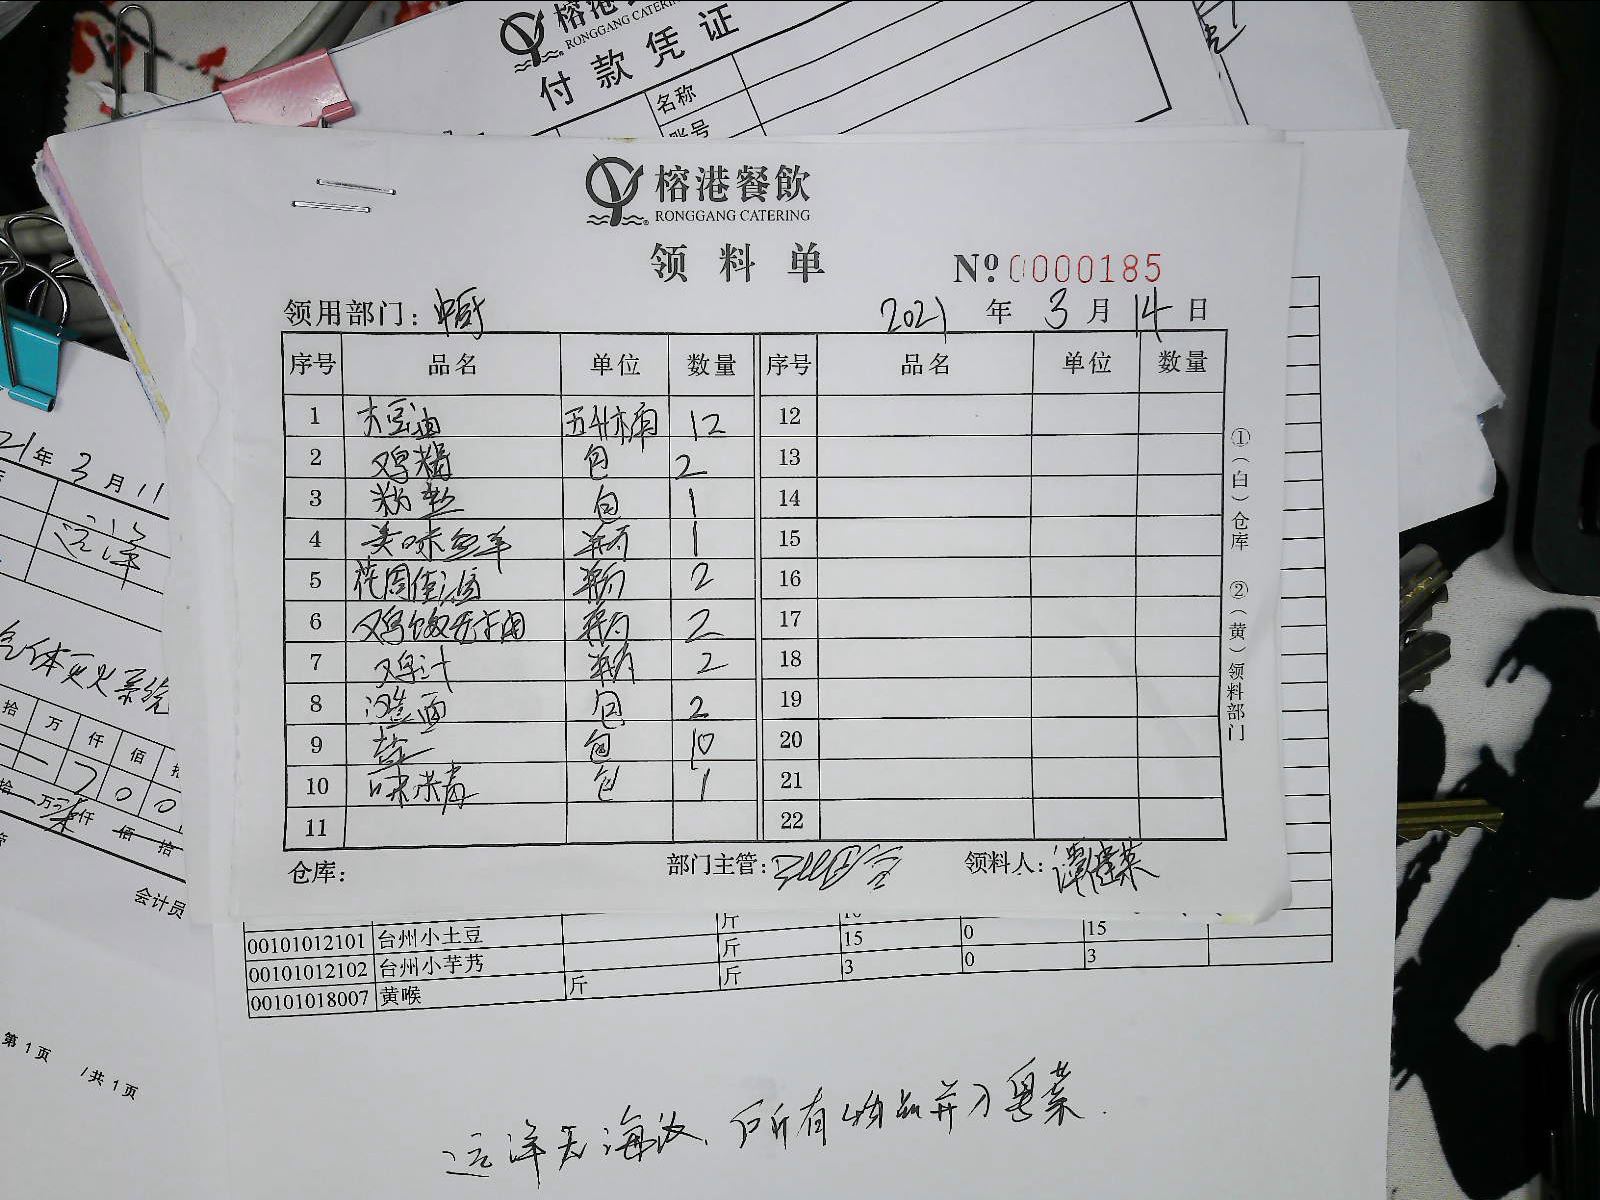 榕港餐
RONGGANG CATERING
付款凭证
名称
账号
榕港餐飲
RONGGANG CATERING
领料单
Nº 0000185
领用部门：中厨
2021 年 3 月 14 日
序号 品名 单位 数量 序号 品名 单位 数量
1 大豆油 五升桶 12 12
2 鸡精 包 2 13
3 粉丝 包 1 14
4 美味鱼羊 瓶 1 15
5 瓶 2 16
6 瓶 2 17
7 鸡汁 瓶 2 18
8 面 包 2 19
9 盐 包 10 20
10 味 包 1 21
11 22
仓库： 部门主管： 领料人：谭健英
①（白）仓库 ②（黄）领料部门
21年 3月 11
远洋
气体灭火系统
拾 万 仟 佰 拾
一 7 0 0
拾 万 仟 佰 拾
会计员
第 1 页 /共 1 页
斤
00101012101 台州小土豆 斤 15 0 15
00101012102 台州小芋艿 斤 3 0 3
00101018007 黄喉 斤 斤
所有物品并入粤菜.